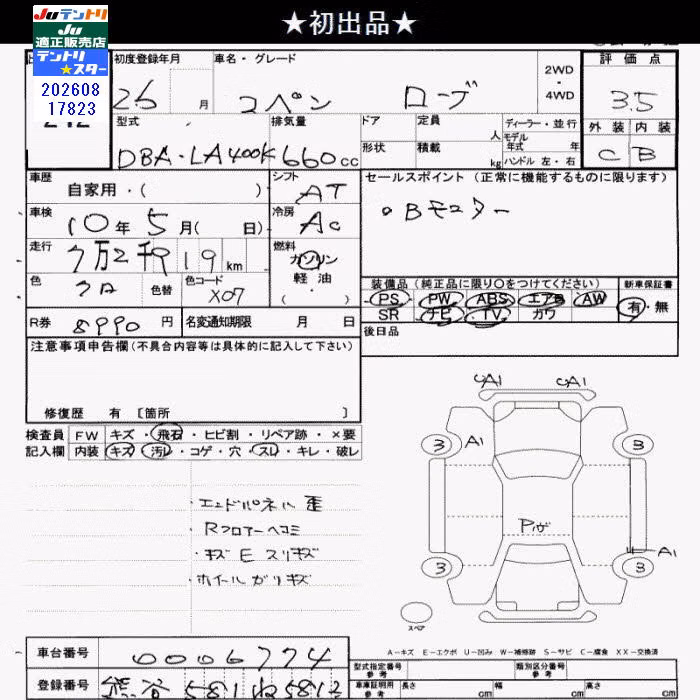 ★初出品★
JUテントリ
JU
適正販売店
テントリ
★スター
202608
17823
初度登録年月 車名・グレード 2WD 評価点
26 月 コペン ローブ 4WD 3.5
型式 排気量 ドア 定員 人 ディーラー・並行 外装 内装
モデル年式 年式
DBA・LA400K 660cc 形状 積載 kg ハンドル 左・右 C B
車歴 シフト セールスポイント (正常に機能するものに限ります)
自家用・( ) AT
車検 冷房 ○Bモニター
10年5月( 日) AC
走行 燃料
7万2千919km ガソリン
軽油
色 色替 色コード ( ・ )
クロ X07
装備品 (純正品に限り○をつけてください) 新車保証書
PS PW ABS エアB AW 有・無
SR ナビ TV カワ
R券 8990円 名変通知期限 月 日 後日品
注意事項申告欄(不具合内容等は具体的に記入して下さい)
修復歴 有 〔箇所 〕
検査員 FW キズ・飛石・ヒビ割・リペア跡・×要
記入欄 内装 キズ・汚レ・コゲ・穴・スレ・キレ・破レ
・エンドパネル歪
・Rフロアーヘコミ
・キズ E スリキズ
・ホイールガリキズ
A1 A1
3 A1 3
Pハゲ
3 3 A1
スペア
A-キズ E-エクボ U-凹み W-補修跡 S-サビ C-腐食 XX-交換済
車台番号 0006774
型式指定番号 参考 類別区分番号 参考
登録番号 熊谷581ね5813
車庫証明用 参考 長さ cm 幅 cm 高さ cm